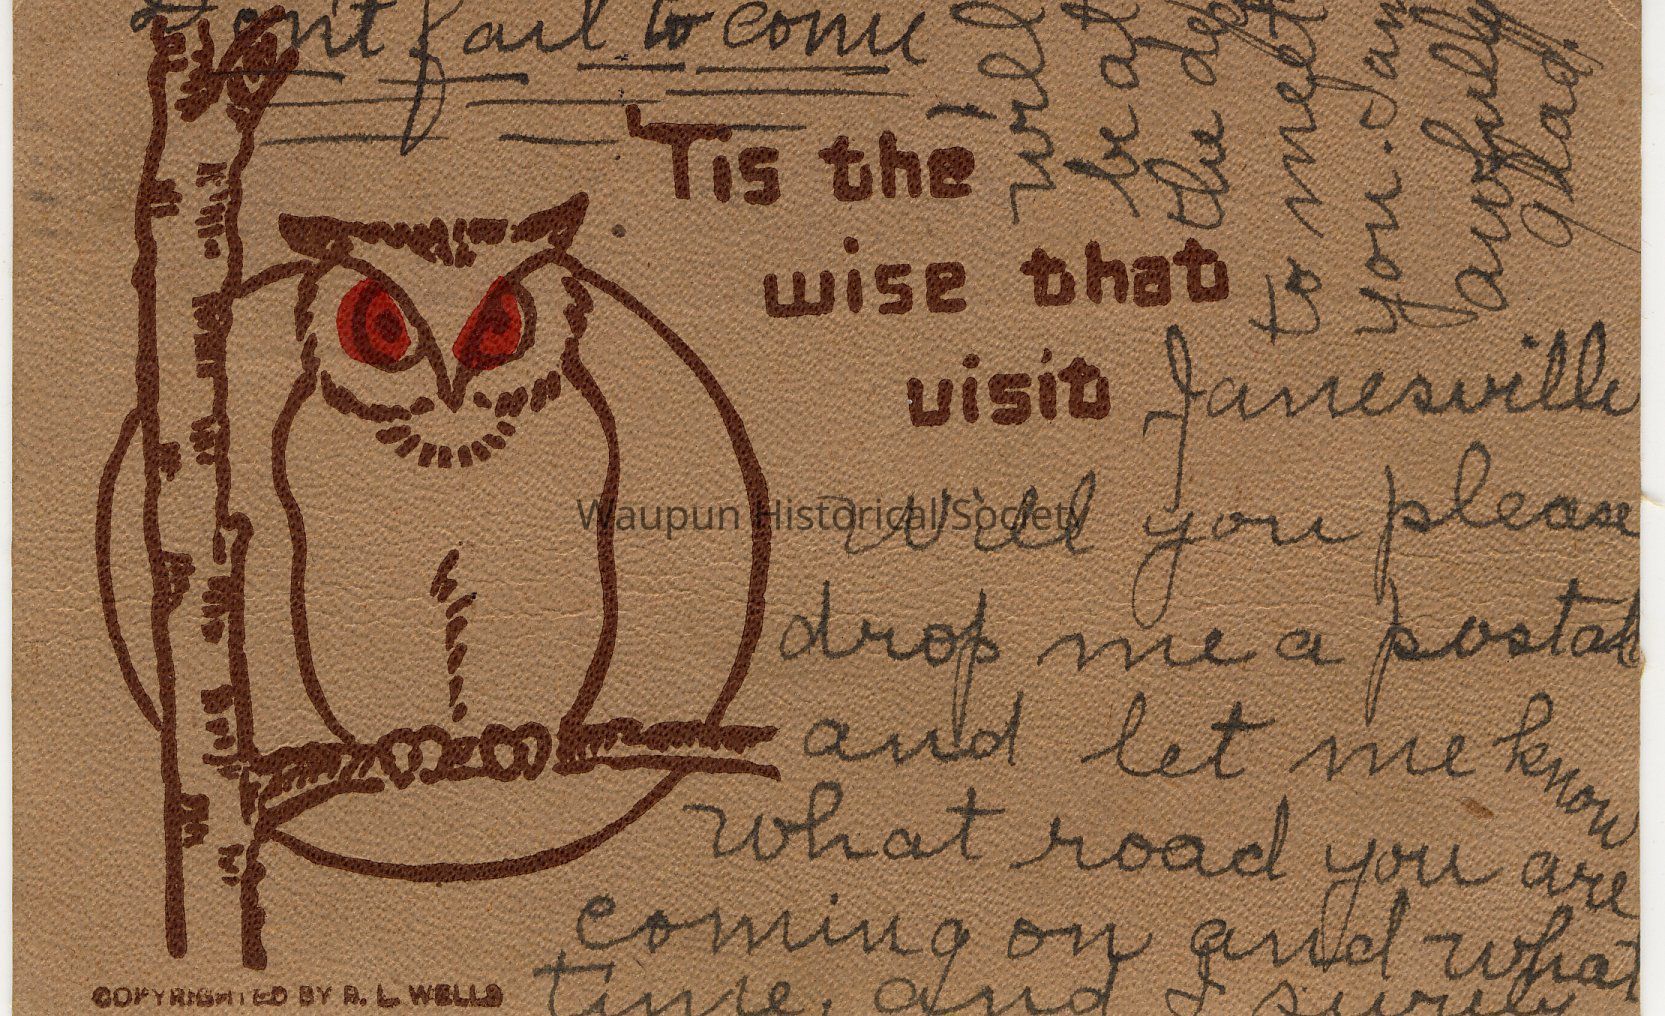 Don't fail to come
'Tis the
wise that
visit
Janesville
Will you please
drop me a postal
and let me know
what road you are
coming on and what
time, and I surely
will
be at
the
to meet
you. I am
awfully
glad.
Waupun Historical Society
COPYRIGHTED BY R. L. WELLS